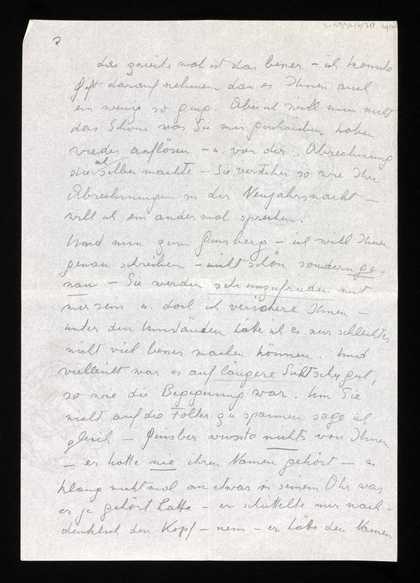 2
das zweite mal ist das besser – ich konnte
Gift darauf nehmen dass es Ihnen auch
ein wenig so ging. Aber ich will nun nicht
das Schöne was Sie mir geschrieben haben
wieder auflösen – u. von der Abrechnung
die ich selber machte – Sie verstehen so wie Ihre
Abrechnungen in der Neujahrsnacht –
will ich ein ander mal sprechen.
Und nun zum Ginsberg – ich will Ihnen
genau schreiben – nicht schön sondern ge-
nau – Sie werden sehr unzufrieden mit
mir sein u. doch ich versichere Ihnen –
unter den Umständen hatte ich es nur schlechter
nicht viel besser machen können. Und
vielleicht war es auf längere Sicht sehr gut,
so wie die Begegnung war. Um Sie
nicht auf die Folter zu spannen sage ich
gleich – Ginsberg wusste nichts von Ihnen
– er hatte nie ihren Namen gehört – es
klang nicht mal an etwas in seinem Ohr was
er je gehört hatte – er schüttelte nur nach-
denklich den Kopf – nein – er hätte den Namen